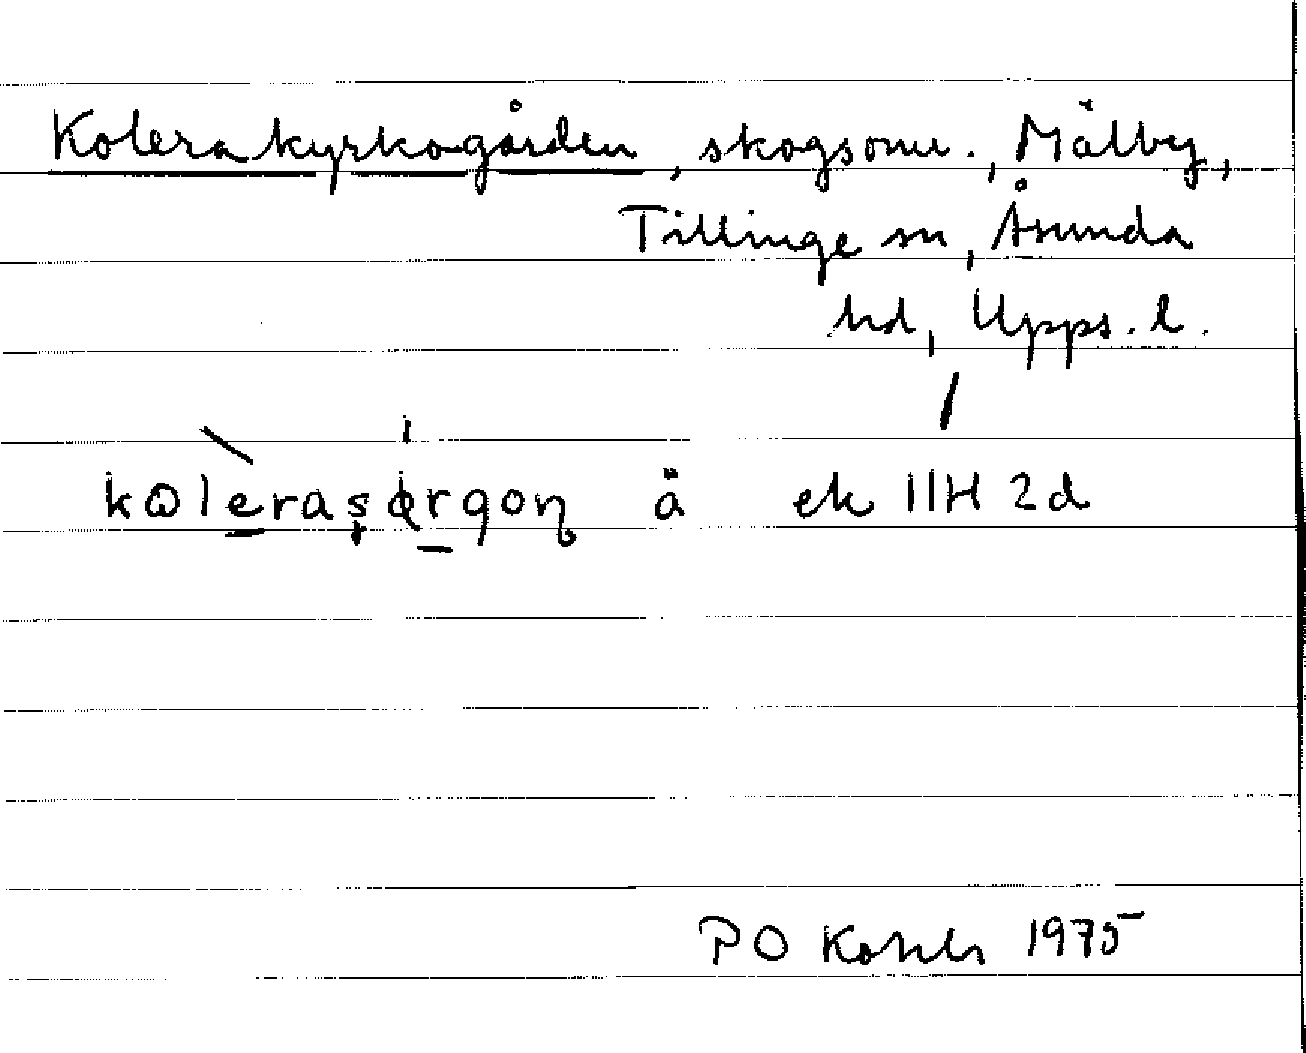 Kolerakyrkogården, skogsomr., Mälby,
Tillinge sn, Åsunda
hd, Upps. l.
ä ek 11H 2d
PO 1975